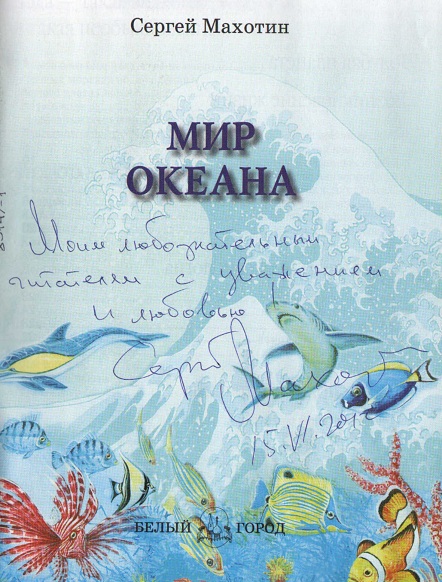 Сергей Махотин
МИР
ОКЕАНА
Моим любознательным
читателям с уважением
и любовью!
Сергей Махотин
БЕЛЫЙ ГОРОД